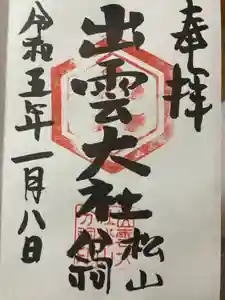 奉拝
出雲大社
松山分祠
令和五年一月八日